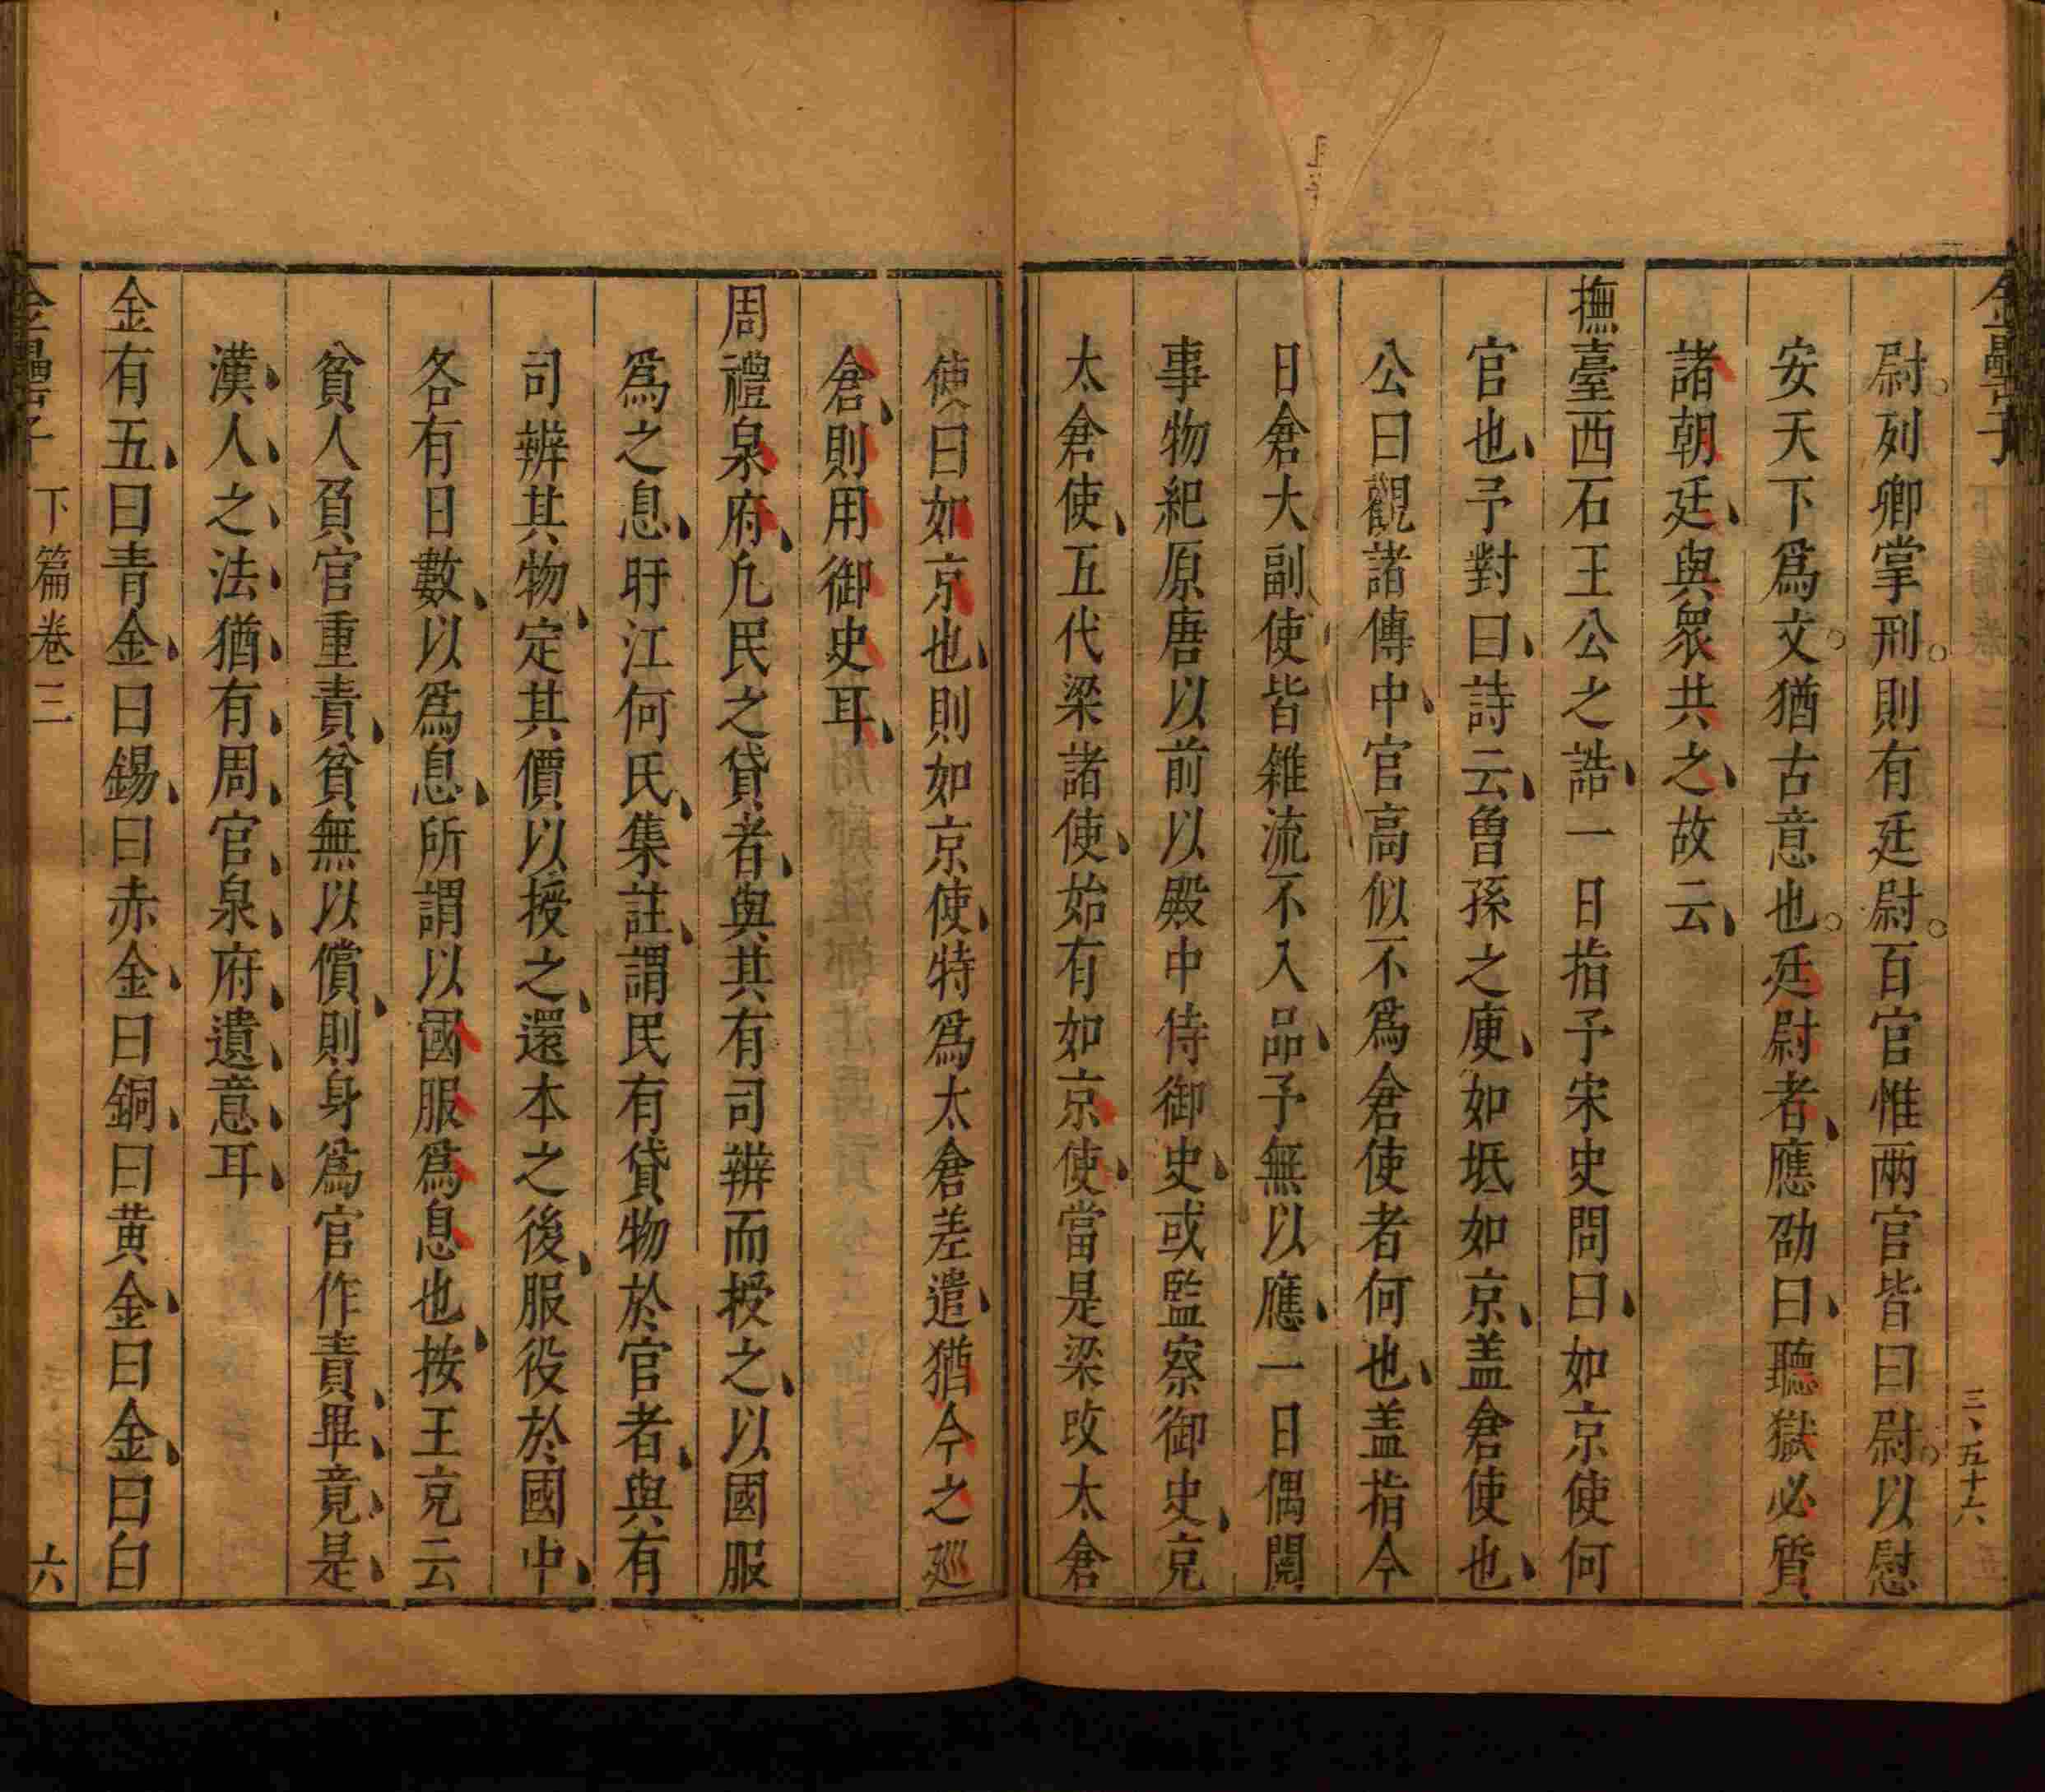 金罍子
三、五十六
尉。列卿掌刑。則有廷尉。百官惟兩官皆曰尉。以慰
安天下爲文。猶古意也。廷尉者、應劭曰、聽獄必質
諸朝廷、與衆共之、故云、
撫臺西石王公之誥、一日指予宋史問曰、如京使何
官也、予對曰、詩云、曾孫之庾、如坻如京、盖倉使也、
公曰觀諸傳中、官高似不爲倉使者何也、盖指今
日倉大副使、皆雜流不入品、予無以應、一日偶閱
事物紀原唐以前以殿中侍御史、或監察御史、克
太倉使、五代梁諸使、始有如京使、當是梁攺太倉
使曰如京也、則如京使、特爲太倉差遣、猶今之廵
倉、則用御史耳、
周禮泉府、凢民之貸者、與其有司辨而授之、以國服
爲之息、旴江何氏、集註、謂民有貸物於官者、與有
司辨其物、定其價以授之、還本之後、服役於國中、
各有日數、以爲息、所謂以國服爲息也、按王克云
貧人負官重責、貧無以償、則身爲官作責、畢、竟、是、
漢、人、之、法、猶、有、周、官、泉、府、遺、意、耳、
金有五、曰青金、曰錫、曰赤金、曰銅、曰黄金、曰金、曰白
金罍子
下篇卷三
六